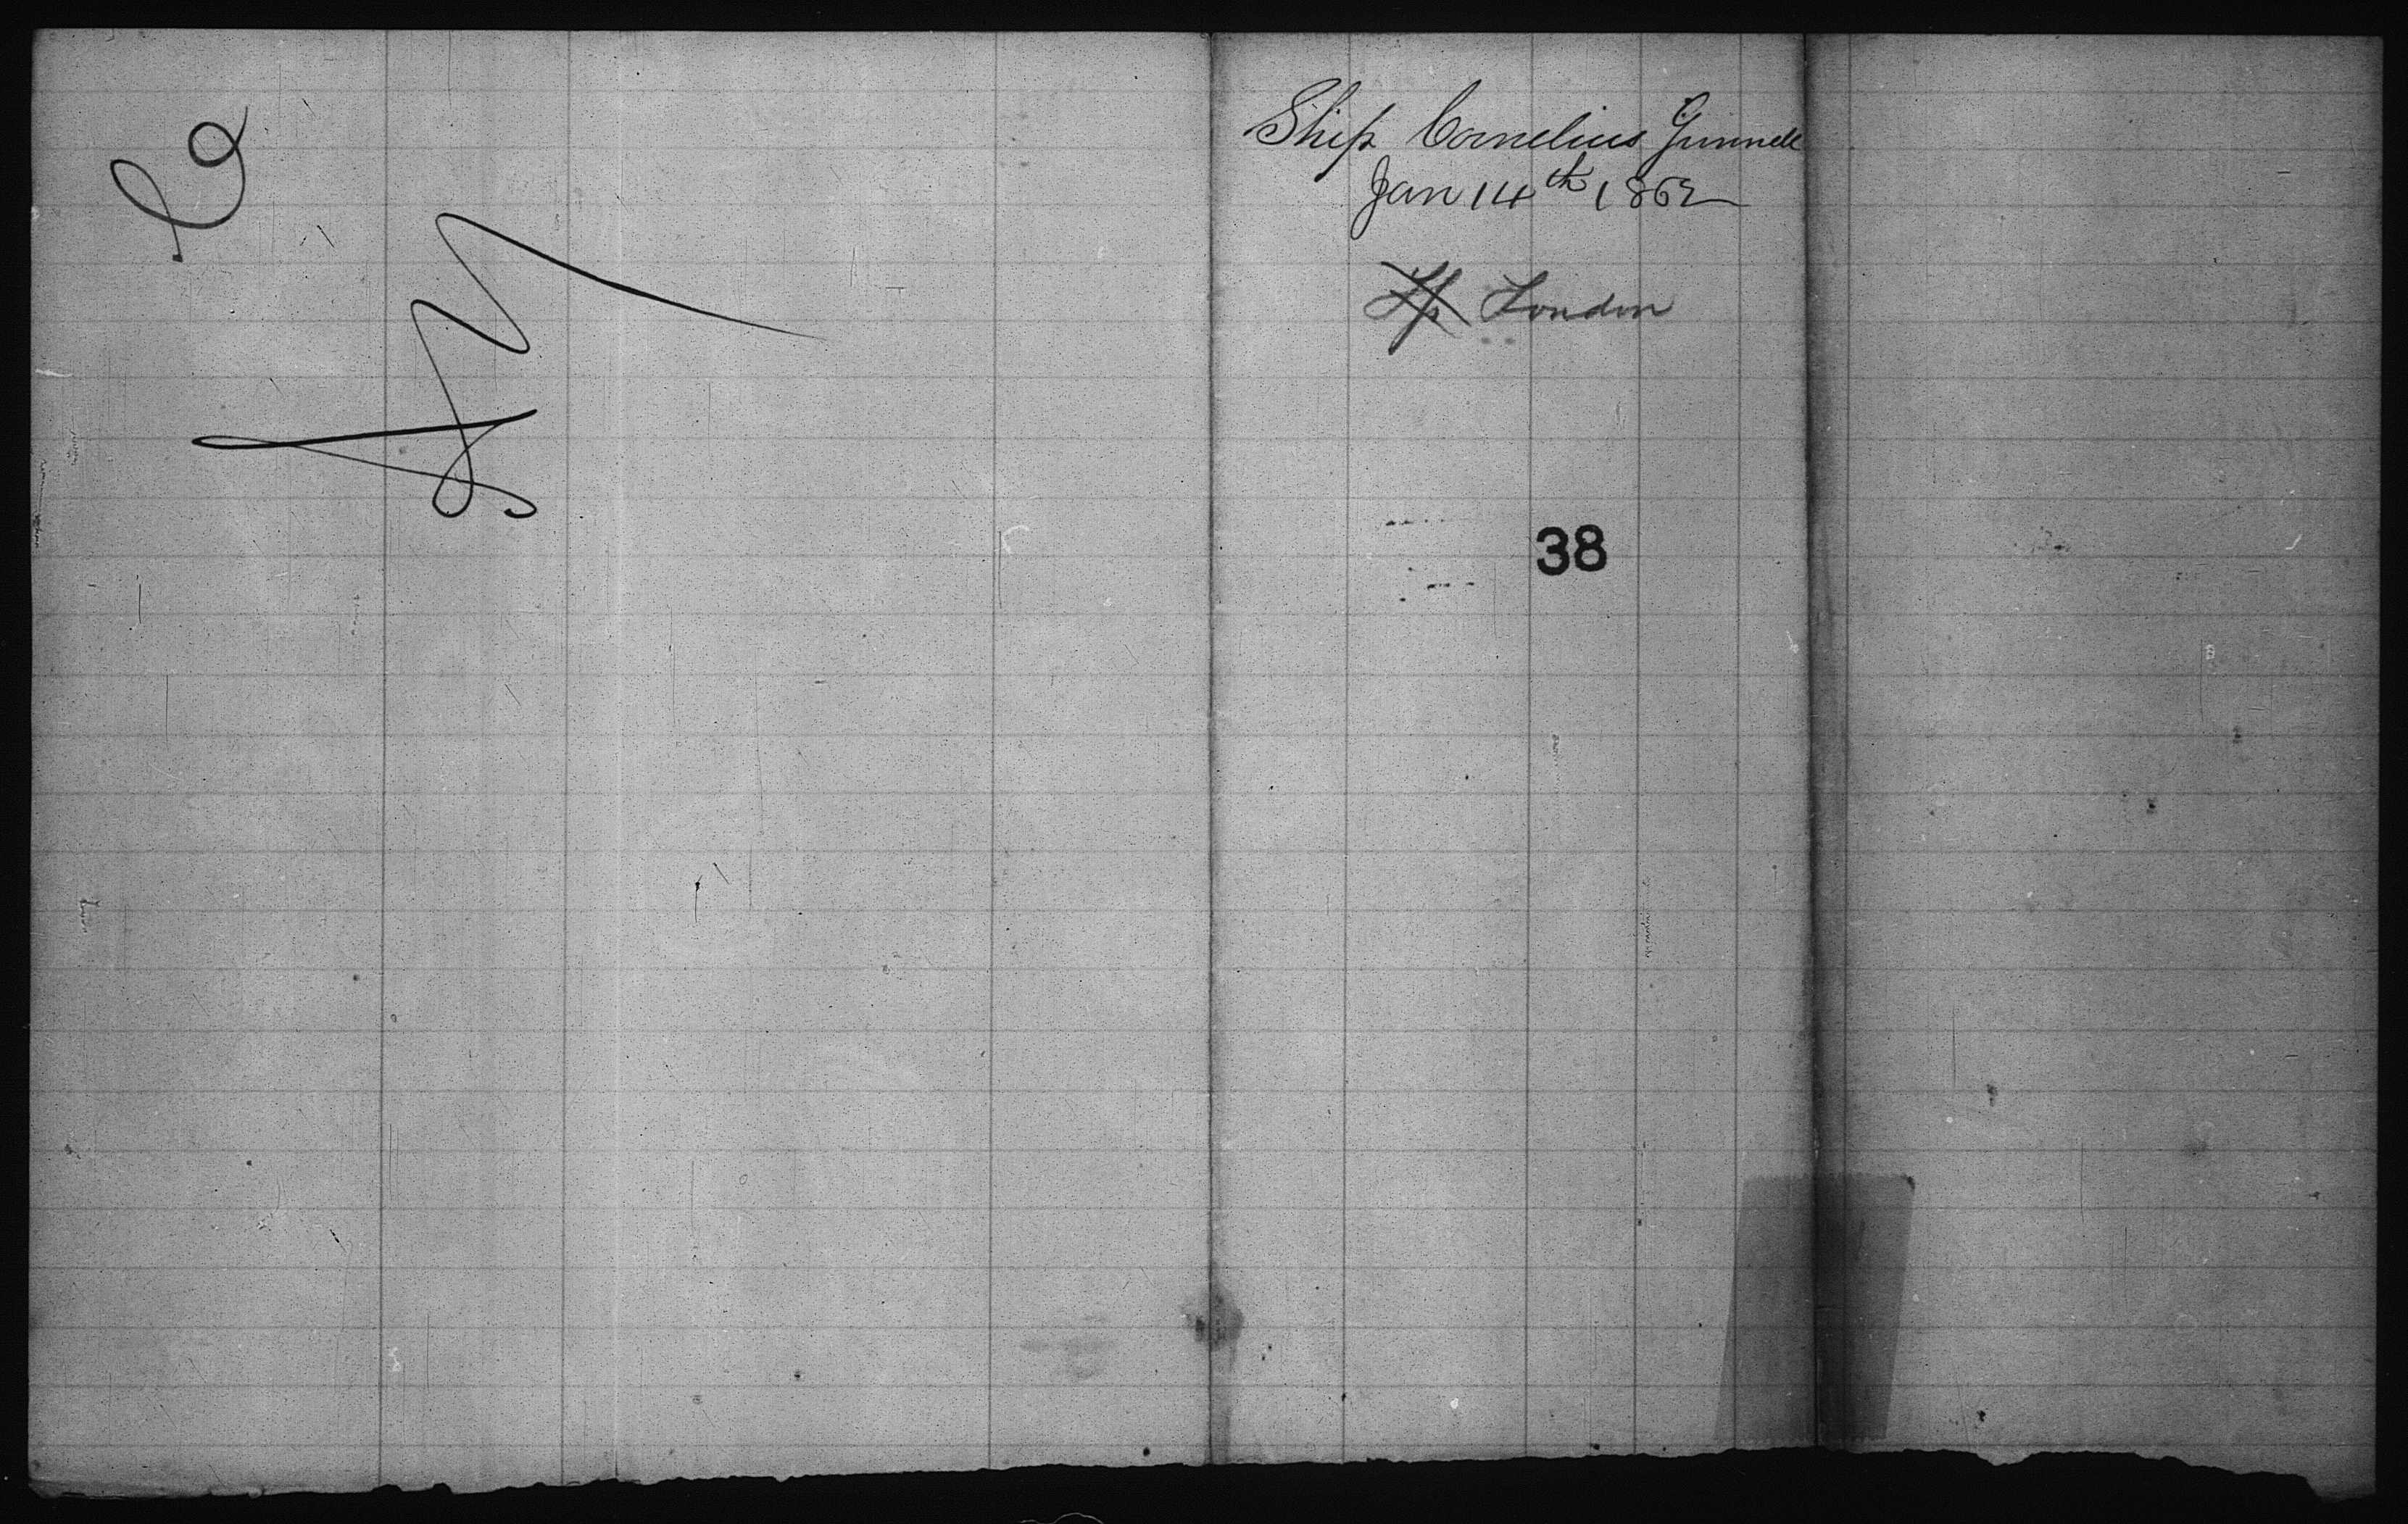 Ship Cornelius Grinnell
Jan 14th 1862
London
38